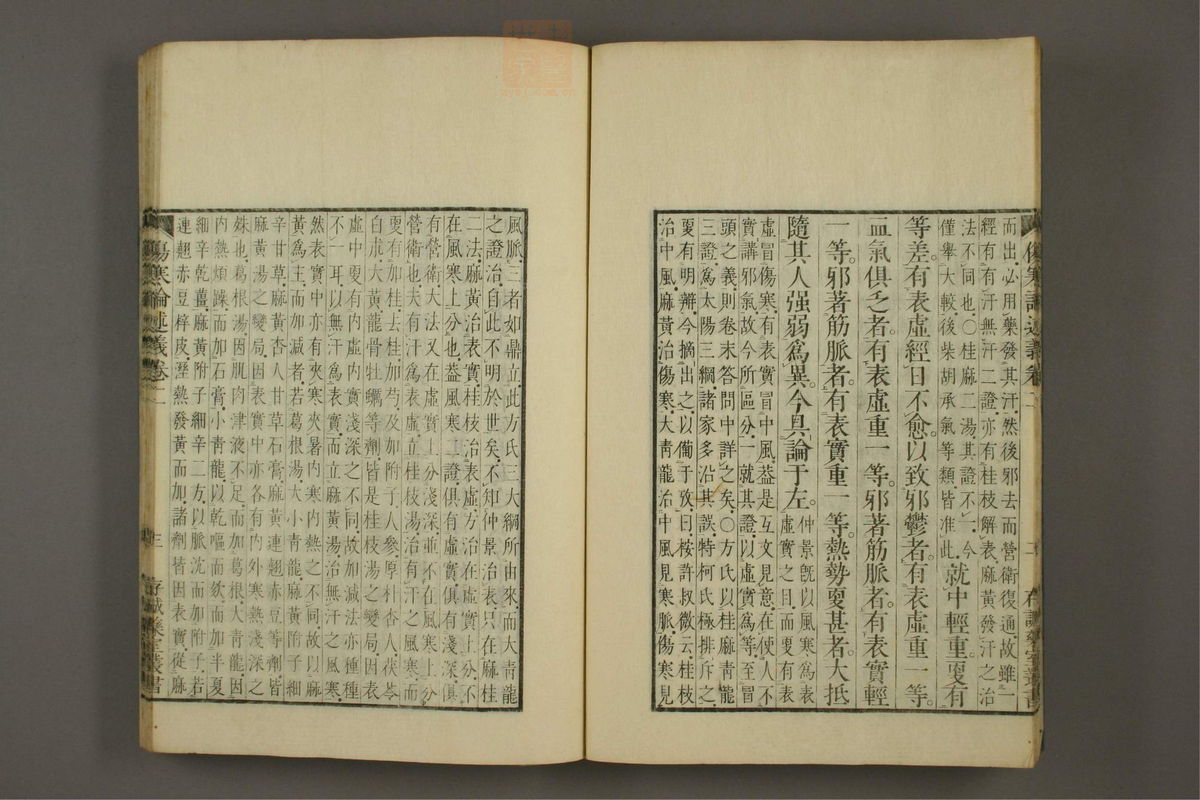 傷寒論述義卷二　二　存誠藥室叢書
而出。必用藥發其汗。然後邪去而營衛復通。故雖一
經有有汗無汗二證。亦有桂枝解表。麻黃發汗之治
法不同也。○桂麻二湯。其證不一。今
僅舉大較。後柴胡承氣等類皆准此。
就中輕重。更有
等差。有表虛經日不愈。以致邪鬱者。有表虛重一等。
血氣俱乏者。有表虛重一等。邪著筋脈者。有表實輕
一等。邪著筋脈者。有表實重一等。熱勢更甚者。大抵
隨其人强弱爲異。今具論于左。
仲景旣以風寒爲表
虛實之目。而更有表
虛冒傷寒。有表實冒中風。葢是互文見意。在使人不
實講邪氣故今所區分。一就其證。以虛實爲等。至冒
頭之義。則卷末答問中詳之矣。○方氏以桂麻青龍
三證。爲太陽三綱。諸家多沿其誤。特柯氏極排斥之。
更有明辨。今摘出之。以備于攷。曰。桉許叔微云。桂枝
治中風。麻黃治傷寒。大青龍治中風見寒脈。傷寒見
風脈。三者如鼎立。此方氏三大綱所由來。而大青龍
之證治。自此不明於世矣。不知仲景治表。只在麻桂
二法。麻黃治表實。桂枝治表虛。方治在虛實上分。不
在風寒上分也。葢風寒二證。俱有虛實。俱有淺深。俱
有營衛。大法又在虛實上分淺深。並不在風寒上分
營衛也。夫有汗爲表虛。立桂枝湯。治有汗之風寒。而
更有加桂去桂。加芍。及加附子人參厚朴杏人茯苓
白朮大黃龍骨牡蠣等劑。皆是桂枝湯之變局。因表
虛中更有内虛内實淺深之不同。故加減法亦種種
不一耳。以無汗爲表實。而立麻黃湯。治無汗之風寒。
然表實中亦有夾寒夾暑内寒内熱之不同。故以麻
黃爲主。而加減者。若葛根湯。大小青龍。麻黃附子細
辛甘草。麻黃杏人甘草石膏。麻黃連翹赤豆等劑。皆
麻黃湯之變局。因表實中亦各有内外寒熱淺深之
殊也。葛根湯因肌肉津液不足。而加葛根。大青龍因
内熱煩躁。而加石膏。小青龍以乾嘔而欬。而加半夏
細辛乾薑。麻黃附子細辛二方。以脈沈而加附子。若
連翹赤豆梓皮。溼熱發黃而加。諸劑皆因表實。從麻
傷寒論述義卷二　三　存誠藥室叢書